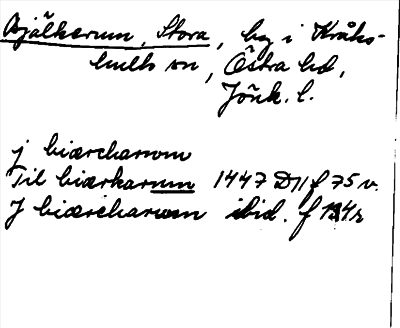 Bjälkerum, Stora, by i Kråks-
hults sn, Östra hd,
Jönk. l.
j biærcharwm
Til biærkarum 1447 D11 f 75 v.
J biærcharwm ibid. f 194r